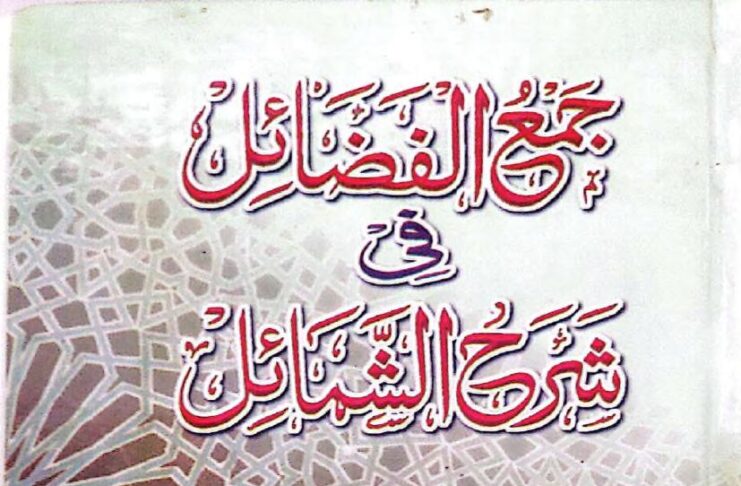 جَمْعُ الْفَضَائِل
فِي
شَرْحُ الشَّمَائِل